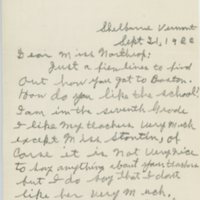 Shelburne Vermont
Sept 21, 1922
Dear Miss Northrop:
Just a few lines to find
out how you got to Boston.
How do you like the school?
I am in the seventh Grade
I like my teachers very much
except Miss Stanton, of
corse it is not very nice
to say anything about your teachers
but I do say that I don't
like her very much,